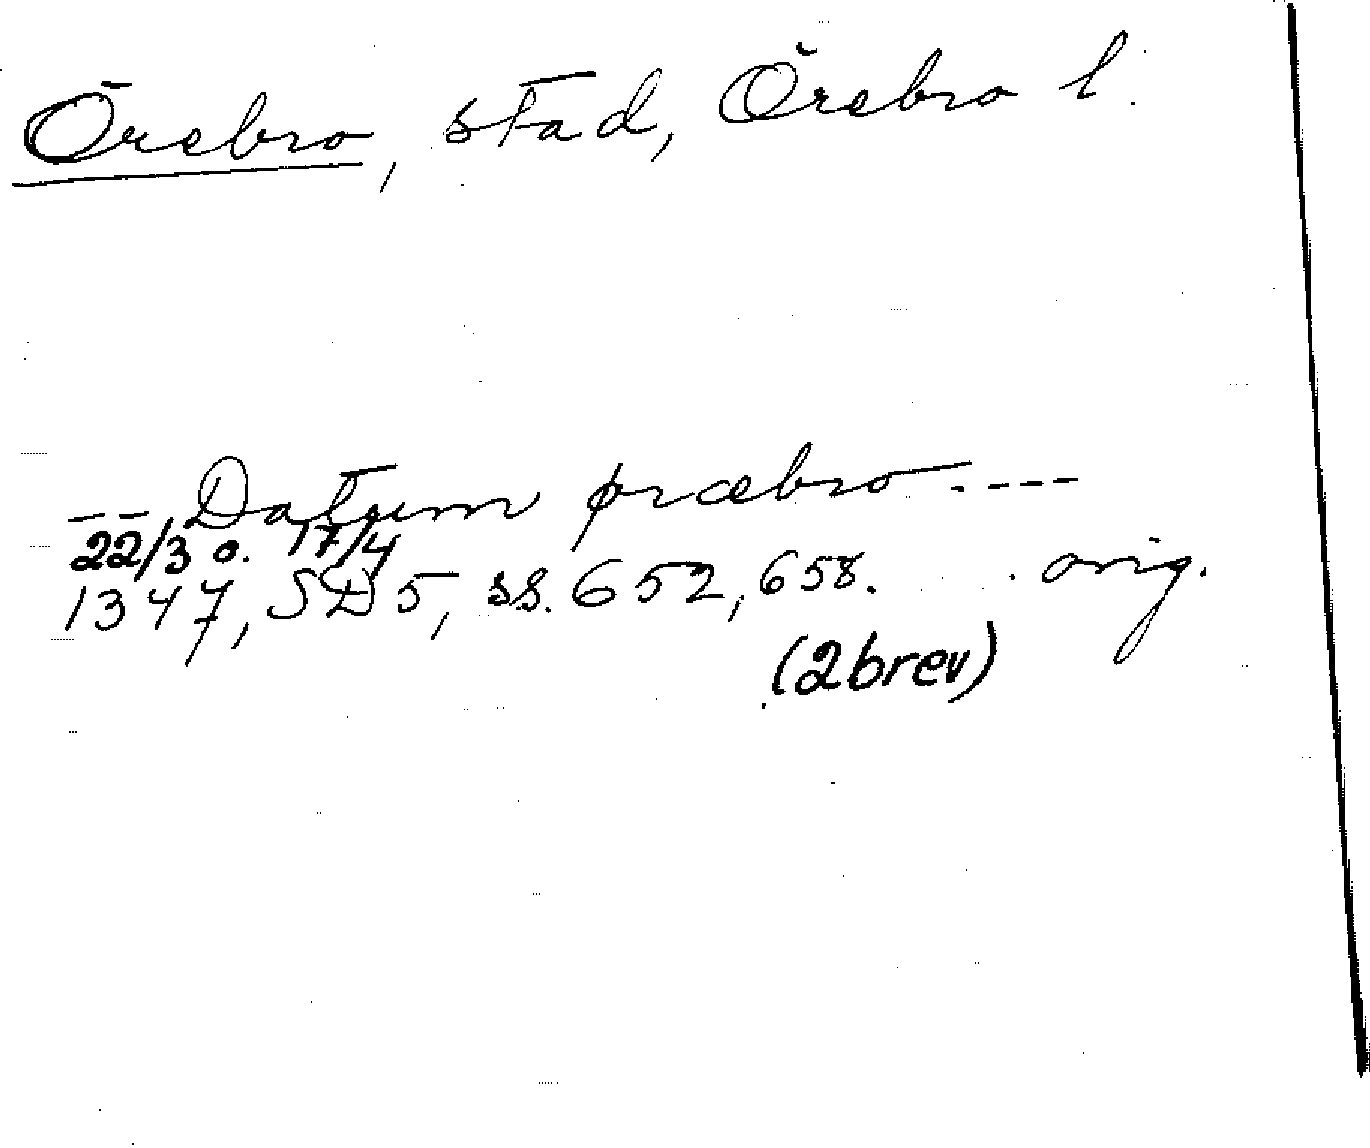 Örebro, stad, Örebro l.
-- Datum ørœbro ----
22/3 o. 17/4
1347, SD 5, ss. 652, 658. orig.
(2 brev)